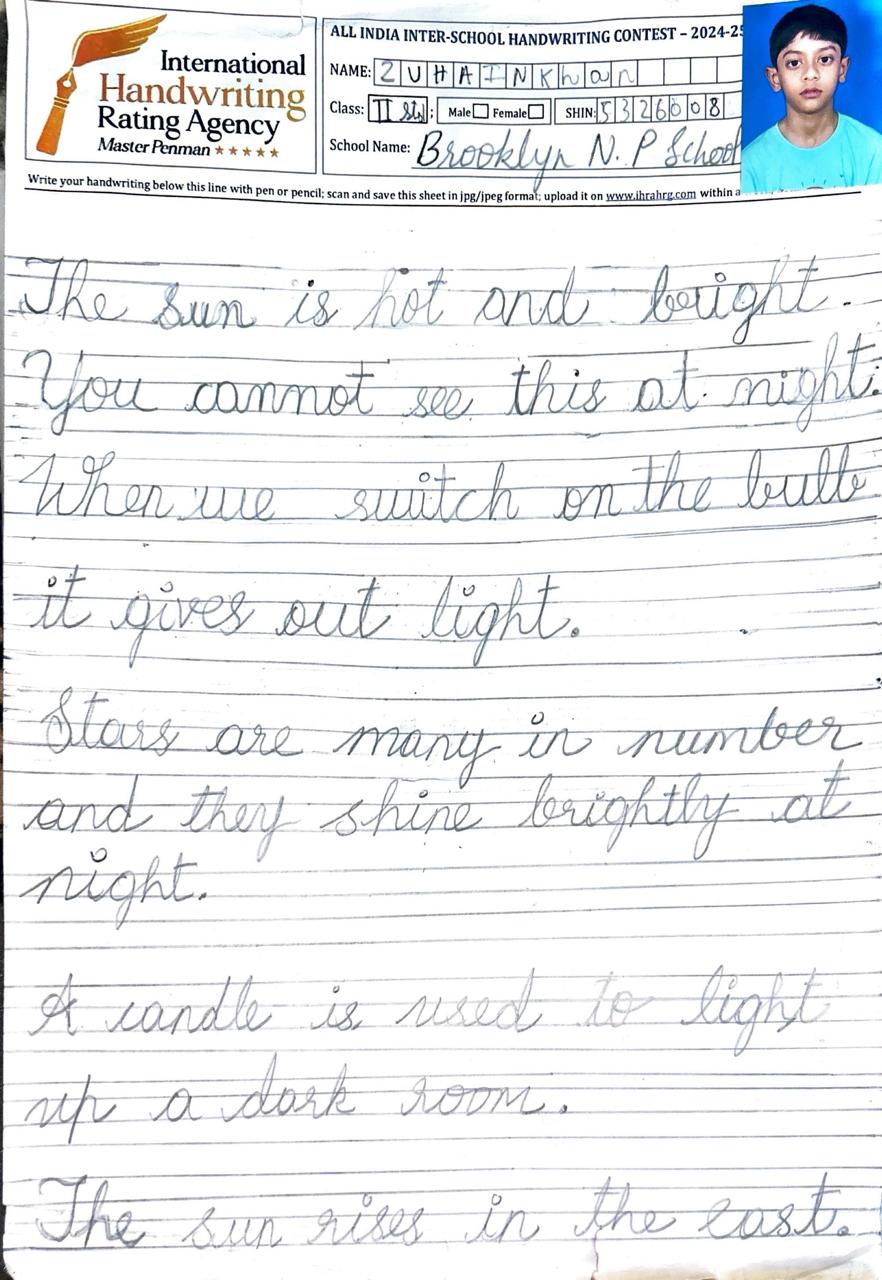 International
Handwriting
Rating Agency
Master Penman ★★★★★
ALL INDIA INTER-SCHOOL HANDWRITING CONTEST – 2024-25
NAME: ZUHAINKhan
Class: II Male Female SHIN: 5326008
School Name: Brooklyn N. P School
Write your handwriting below this line with pen or pencil; scan and save this sheet in jpg/jpeg format; upload it on www.ihrahrg.com within a
The sun is hot and bright.
You cannot see this at night.
When we switch on the bulb
it gives out light.
Stars are many in number
and they shine brightly at
night.
A candle is used to light
up a dark room.
The sun rises in the east.